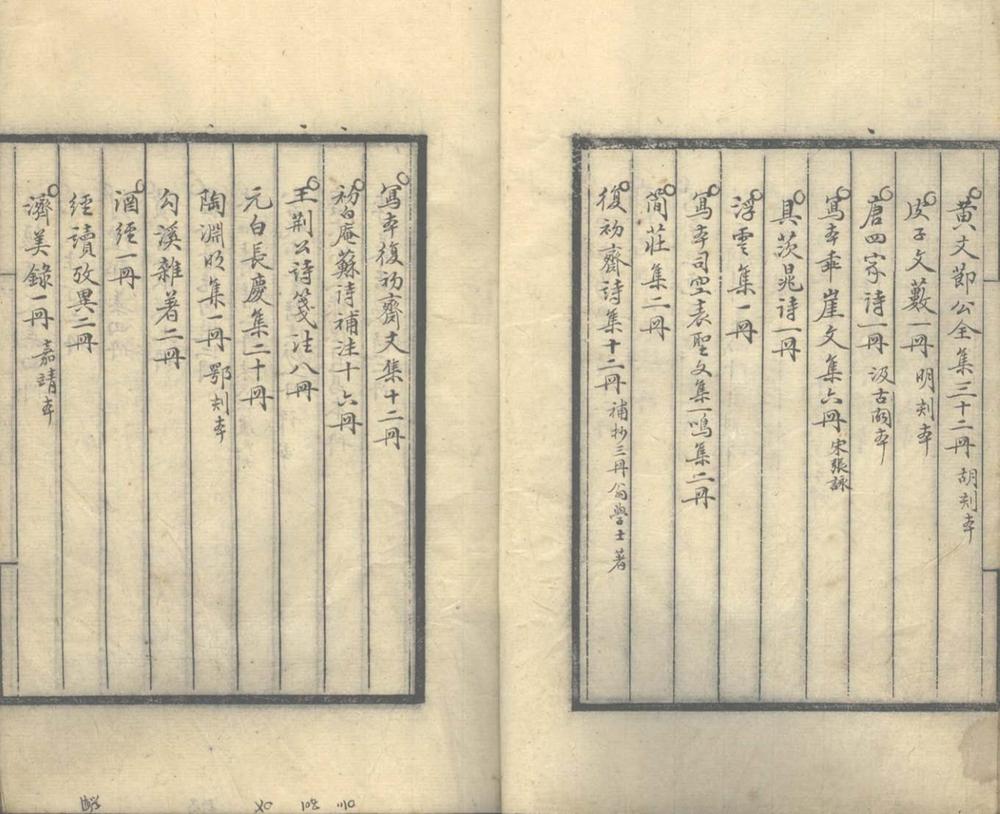 黃文節公全集三十二冊 胡刻本
皮子文藪一冊 明刻本
唐四家詩一冊 汲古閣本
寫本乖崖文集六冊 宋張詠
具茨晁詩一冊
浮雲集一冊
寫本司空表聖文集一鳴集二冊
簡莊集二冊
復初齋詩集十二冊 補抄三冊翁學士著
寫本復初齋文集十二冊
初白庵蘇詩補注十六冊
王荆公詩箋注八冊
元白長慶集二十冊
陶淵明集一冊 鄂刻本
勾溪雜著二冊
酒經一冊
經讀攷異二冊
濟美錄一冊 嘉靖本
108 110